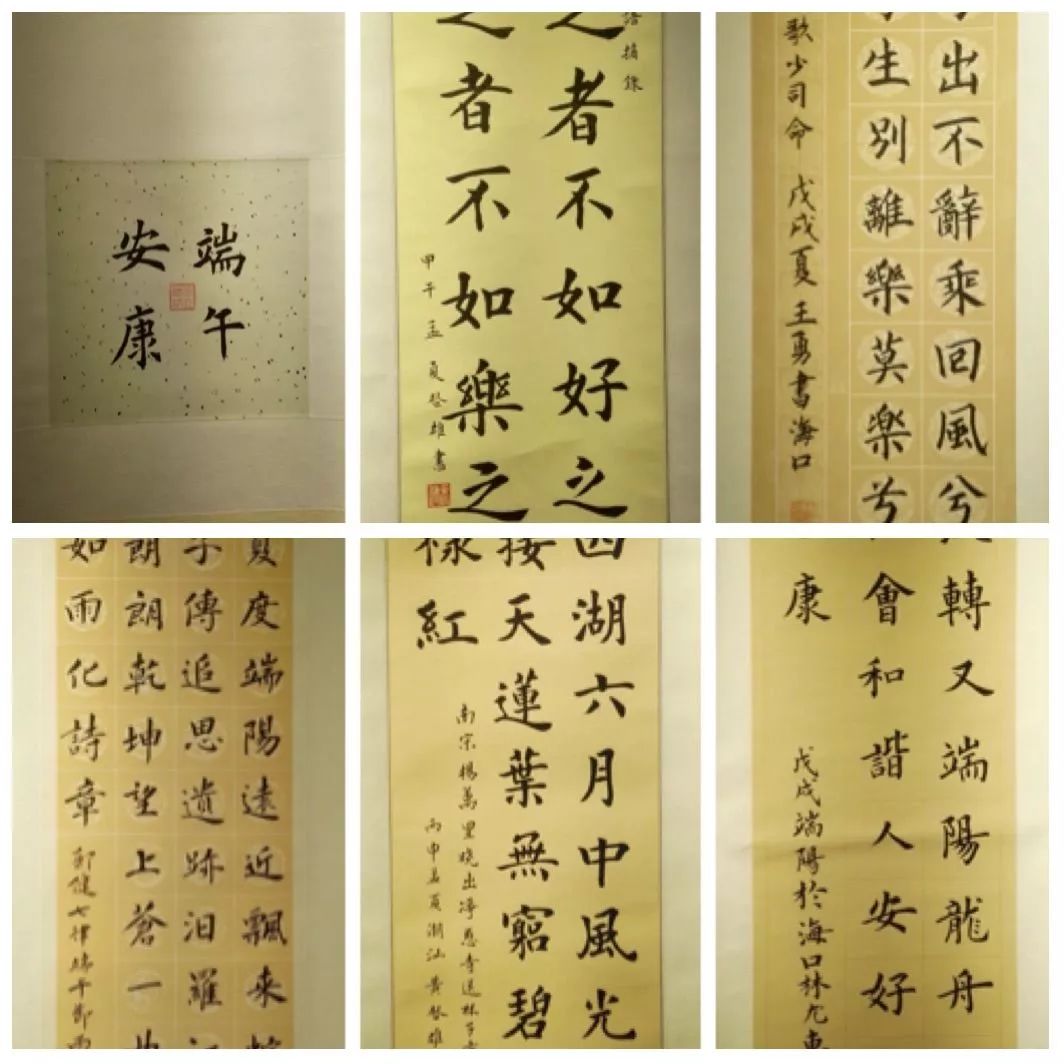 端午
安康
語摘錄
之者不如好之
之者不如樂之
甲午孟夏登雄書
出不辭乘回風兮
生別離樂莫樂兮
歌少司命 戊戌夏王勇書海口
夏度端陽遠近飄來
子傳追思遺跡汨羅江
朗朗乾坤望上蒼一
如雨化詩章
七律端午節雨
西湖六月中風光
接天蓮葉無窮碧
樣紅
南宋楊萬里曉出淨慈寺送林子方
丙申孟夏潮汕黃登雄
轉又端陽龍舟
會和諧人安好
康
戊戌端陽於海口林